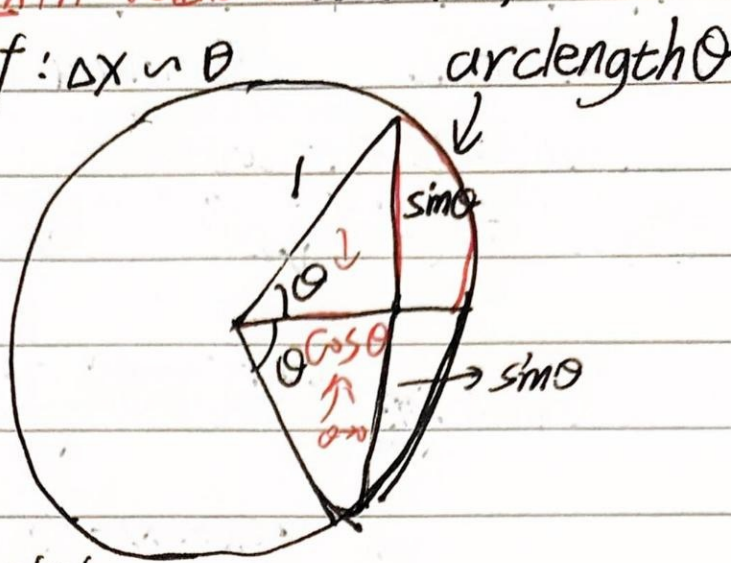 f : Δx ~ θ
arclength θ
1
sinθ
θ
cos θ
θ
sinθ
θ→0